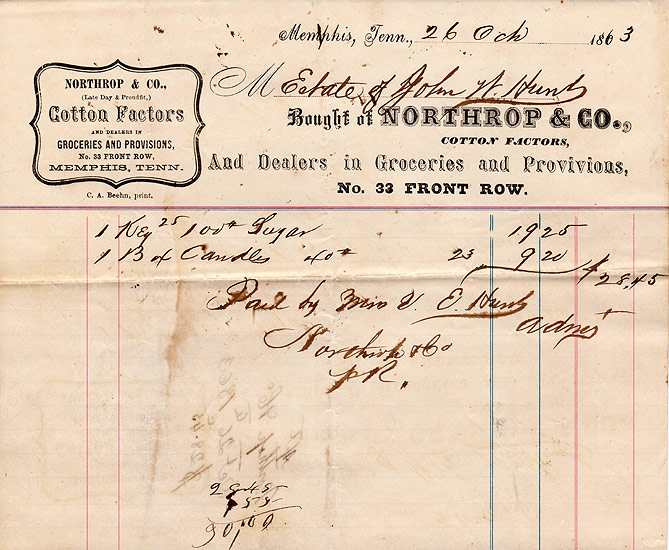 Memphis, Tenn., 26 Oct 1863
NORTHROP & CO.,
(Late Day & Proudfit,)
Cotton Factors
AND DEALERS IN
GROCERIES AND PROVISIONS,
No. 33 FRONT ROW,
MEMPHIS, TENN.
C. A. Beehn, print.
M Estate of John W Hunt
Bought of NORTHROP & CO.,
COTTON FACTORS,
And Dealers in Groceries and Provivions,
No. 33 FRONT ROW.
1 Keg 25 100# Sugar 19 25
1 Box Candles 40# 23 9 20
$28,45
Paid by Mrs E. Hunt
Adms
Northrop & Co
pR.
28 45
1 55
30,00